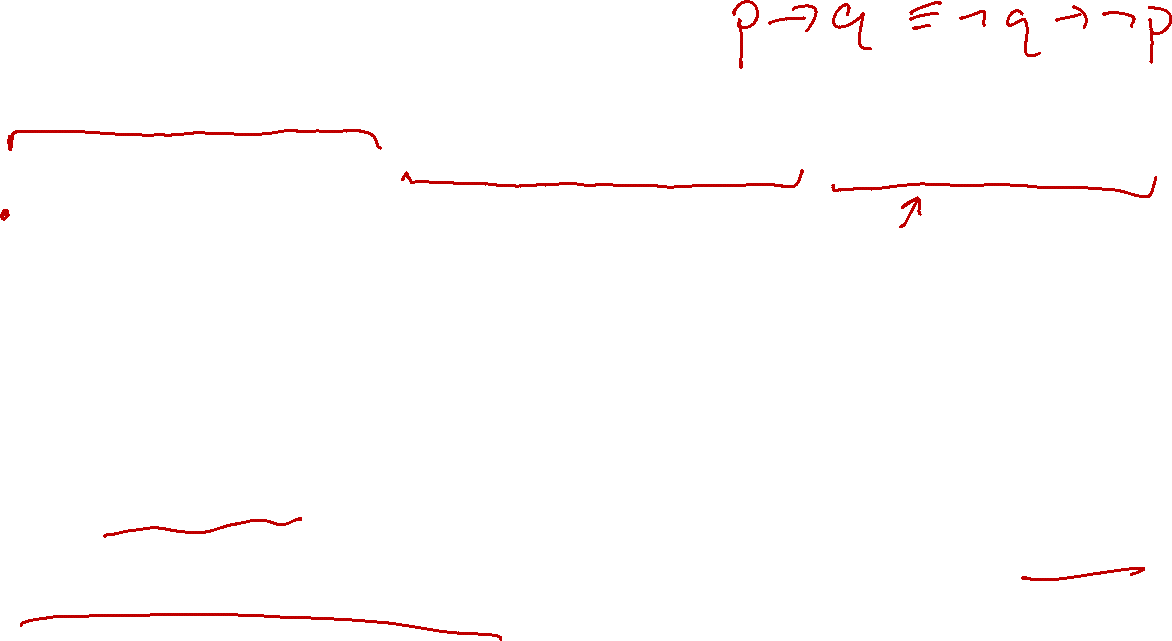 p → q ≡ ¬q → ¬p